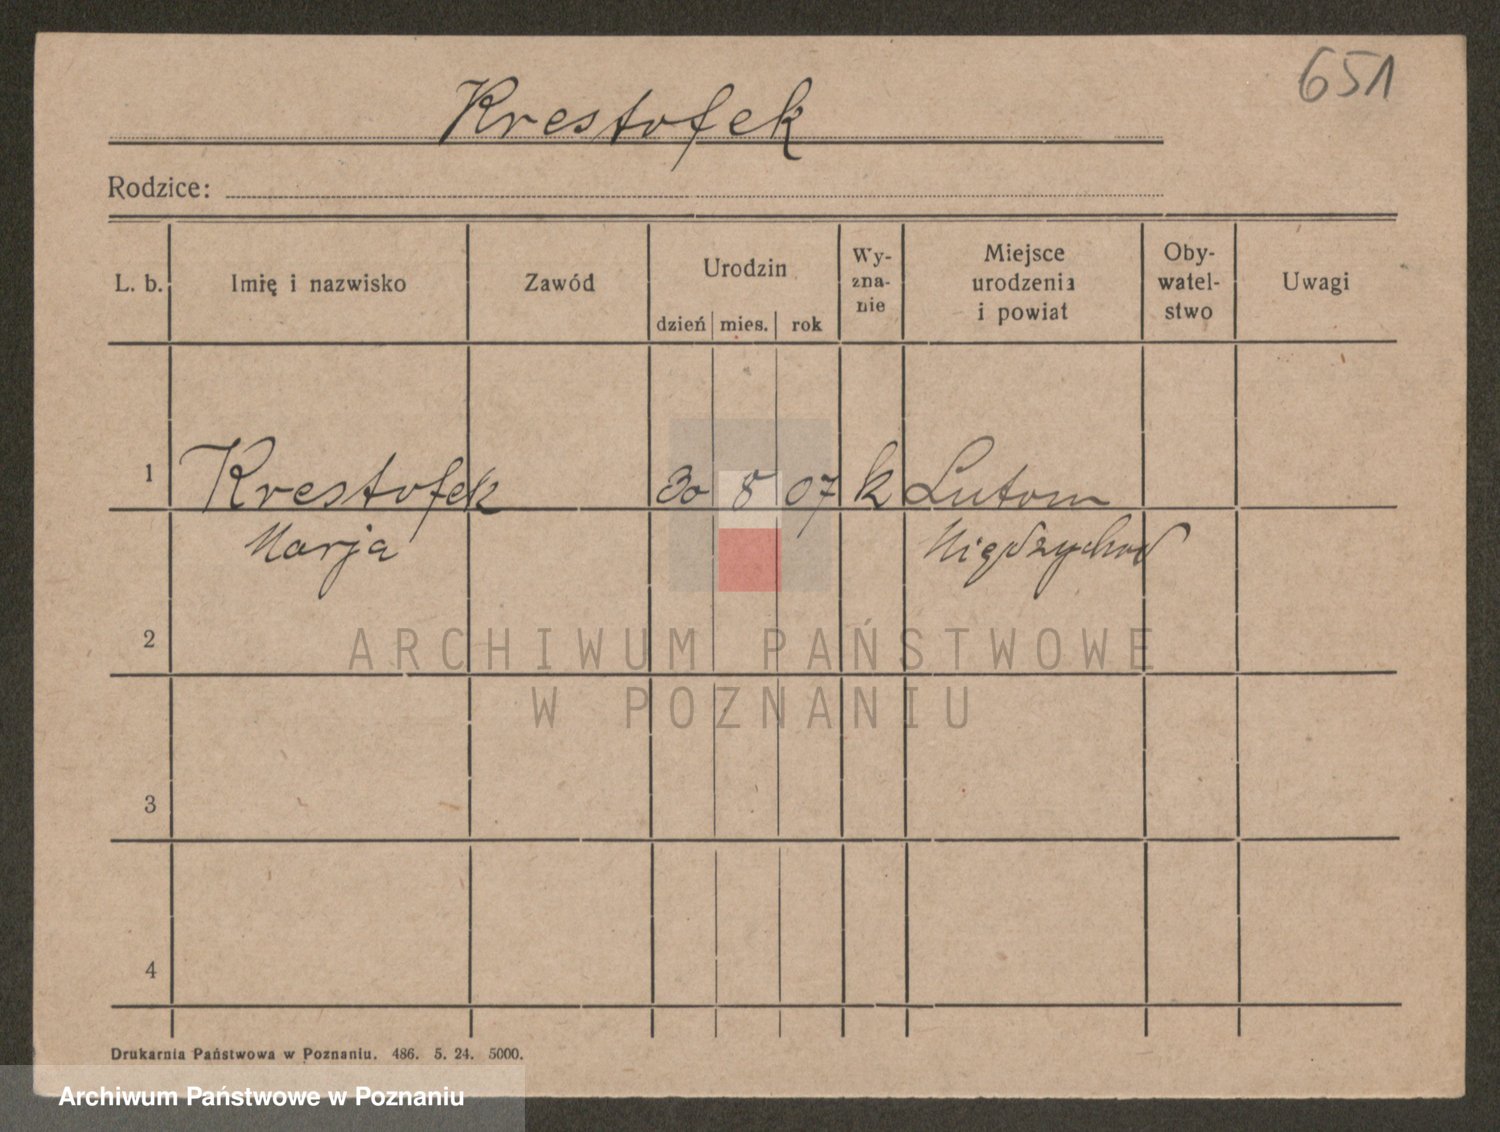 651
Krestofek
Rodzice:
L. b. Imię i nazwisko Zawód Urodzin dzień mies. rok Wy-zna-nie Miejsce urodzenia i powiat Oby-watel-stwo Uwagi
1 Krestofek 30 8 07 k Lutom
Marja Międzychod
2
ARCHIWUM PAŃSTWOWE
W POZNANIU
3
4
Drukarnia Państwowa w Poznaniu. 486. 5. 24. 5000.
Archiwum Państwowe w Poznaniu